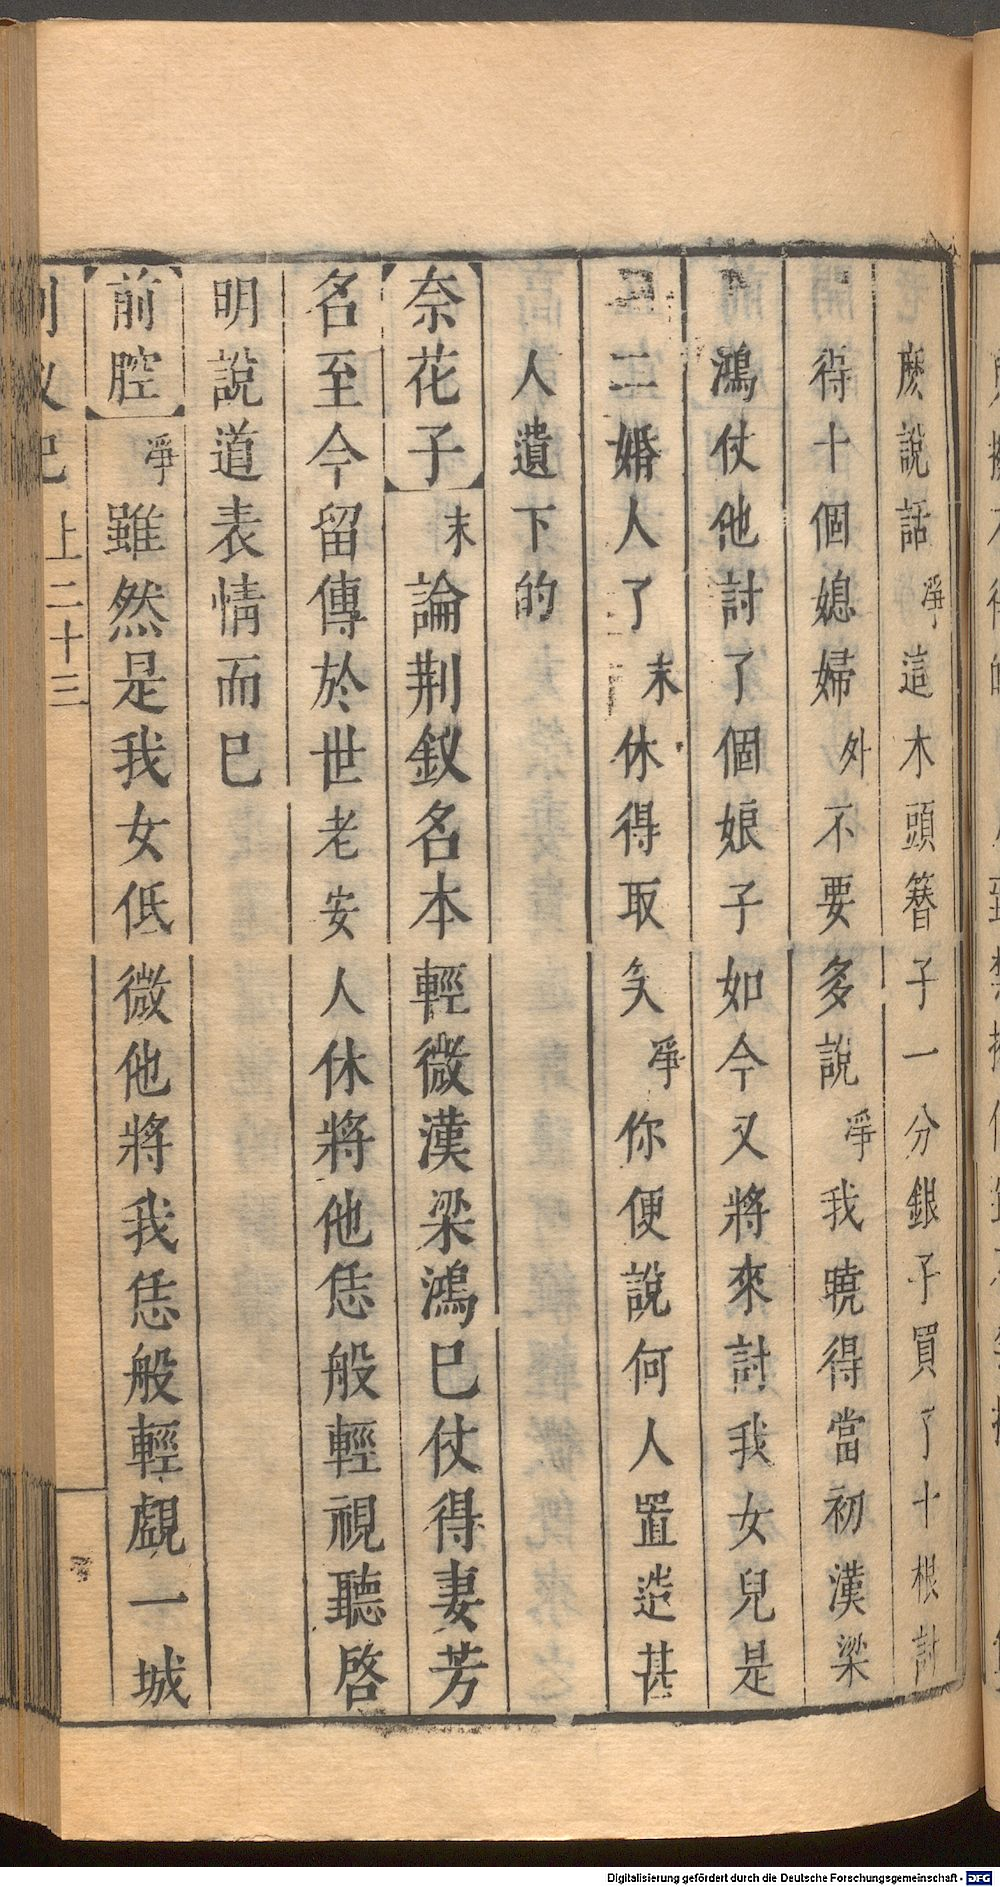 麽說話淨這木頭簪子一分銀子買了十根討
得十個媳婦外不要多說淨我曉得當初漢梁
鴻仗他討了個娘子如今又將來討我女兒是
二婚人了末休得取笑淨你便說何人置造甚
人遺下的
【奈花子】末論荆釵名本輕微漢梁鴻巳仗得妻芳
名至今留傳於世老安人休將他恁般輕視聽啓
明說道表情而巳
【前腔】淨雖然是我女低微他將我恁般輕覷一城
上二十三
Digitalisierung gefördert durch die Deutsche Forschungsgemeinschaft - DFG